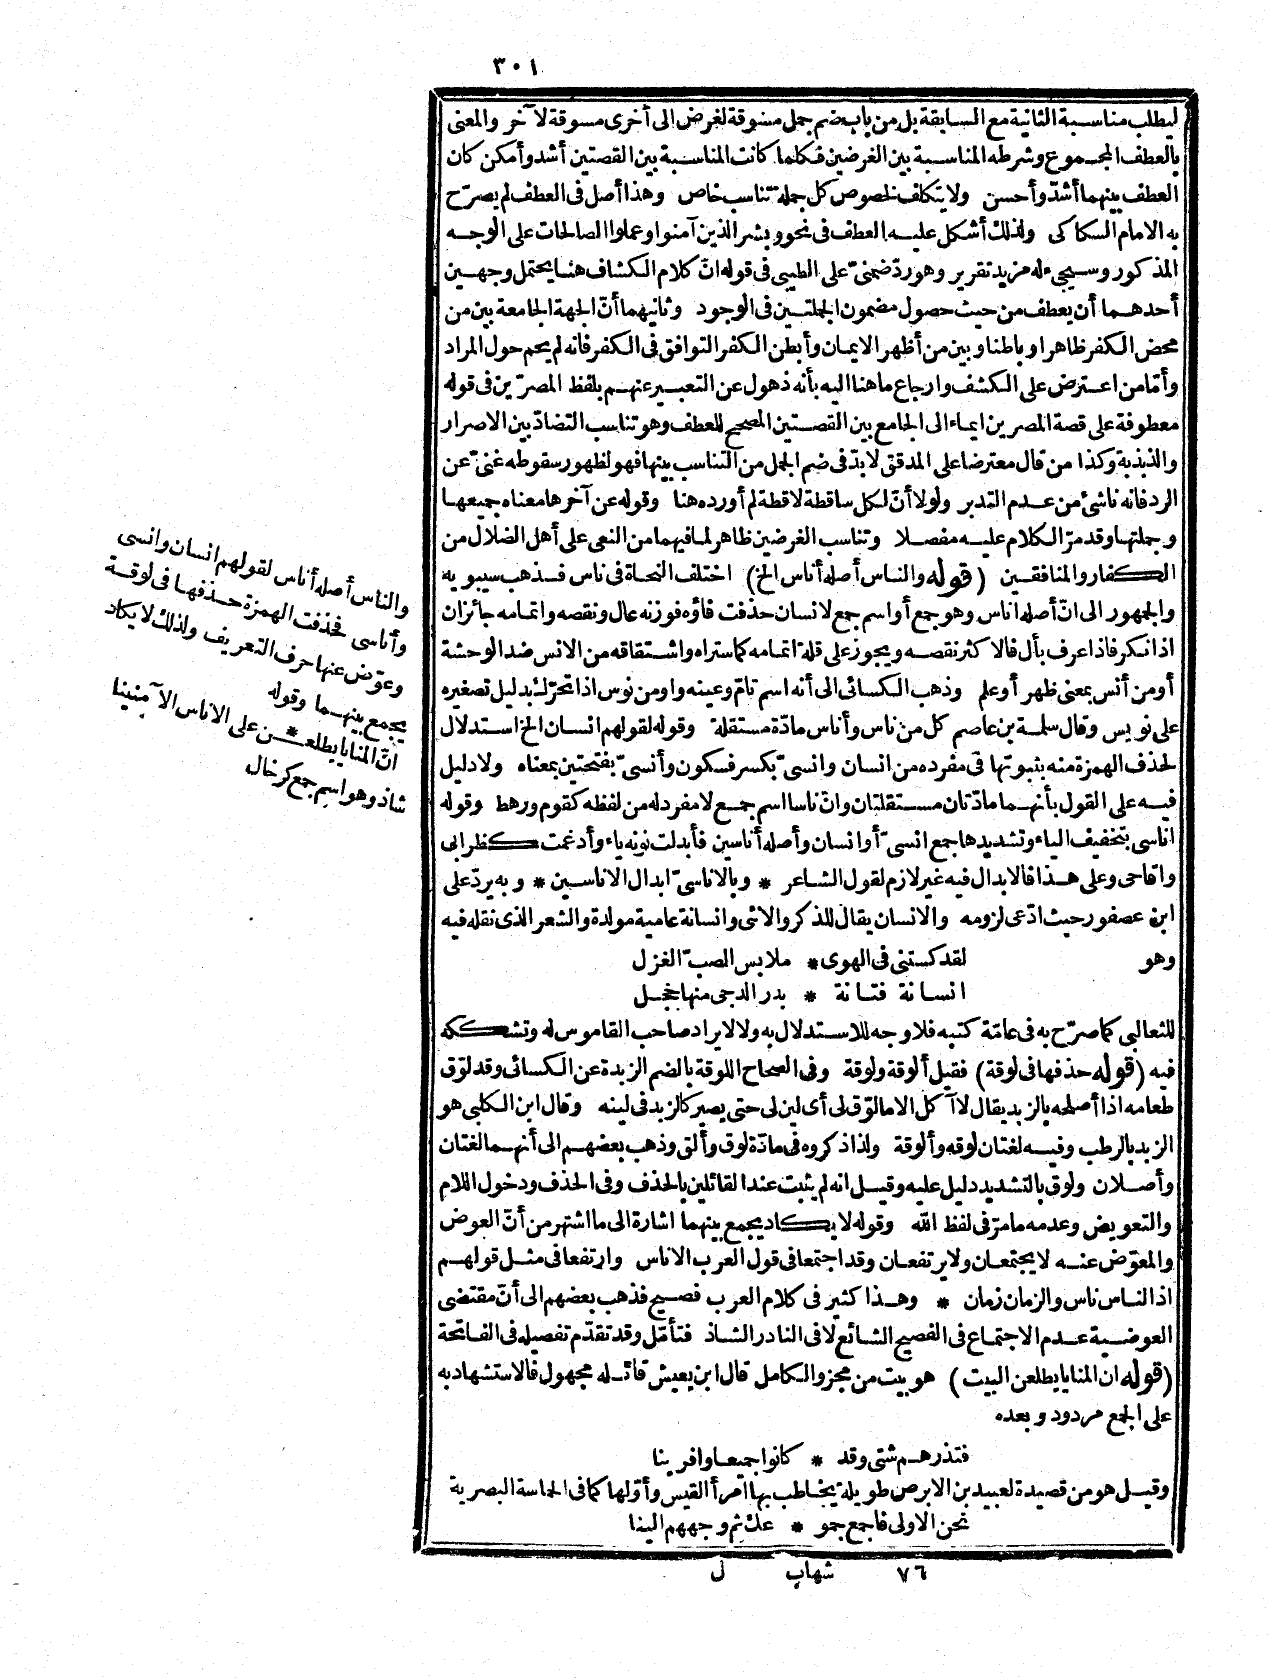 ٣٠١
ليطلب مناسبة الثانية مع السابقة بل من باب ضم جمل مسوقة لغرض الى أخرى مسوقة لآخر والمعنى
بالعطف المجموع وشرطه المناسبة بين الغرضين فكلما كانت المناسبة بين القصتين أشد وأمكن كان
العطف بينهما أشدّ وأحسن ولا يتكلف لخصوص كل جملة تناسب خاص وهذا أصل فى العطف لم يصرّح
به الامام السكاكى ولذلك أشكل عليه العطف فى نحو وبشر الذين آمنوا وعملوا الصالحات على الوجه
المذكور وسيجىء له مزيد تقرير وهو ردّ ضمنىّ على الطيبى فى قوله انّ كلام الكشاف هنا يحتمل وجهين
أحدهما أن يعطف من حيث حصول مضمون الجملتين فى الوجود وثانيهما أنّ الجهة الجامعة بين من
محض الكفر ظاهرا وباطنا وبين من أظهر الايمان وأبطن الكفر التوافق فى الكفر فانه لم يحم حول المراد
وأمّا من اعترض على الكشف وارجاع ما هنا اليه بأنه ذهول عن التعبير عنهم بلفظ المصرّين فى قوله
معطوفة على قصة المصرين ايماء الى الجامع بين القصتين المصحح للعطف وهو تناسب التضادّ بين الاصرار
والذبذبة وكذا من قال معترضا على المدقق لا بدّ فى ضم الجمل من التناسب بينها فهو لظهور سقوطه غنىّ عن
الرد فانه ناشئ من عدم التدبر ولولا أنّ لكل ساقطة لاقطة لم أورده هنا وقوله عن آخرها معناه جميعها
وجملتها وقد مرّ الكلام عليه مفصلا وتناسب الغرضين ظاهر لما فيهما من النعى على أهل الضلال من
الكفار والمنافقين (قوله والناس أصله أناس الخ) اختلف النحاة فى ناس فذهب سيبويه
والجمهور الى انّ أصله اناس وهو جمع أو اسم جمع لانسان حذفت فاؤه فوزنه عال ونقصه واتمامه جائزان
اذا نكر فاذا عرف بأل فالاكثر نقصه ويجوز على قلة اتمامه كما ستراه واشتقاقه من الانس ضد الوحشة
أو من أنس بمعنى ظهر أو علم وذهب الكسائى الى أنه اسم تامّ وعينه واو من نوس اذا تحرّك بدليل تصغيره
على نويس وقال سلمة بن عاصم كل من ناس وأناس مادّة مستقلة وقوله لقولهم انسان الخ استدلال
لحذف الهمزة منه بثبوتها فى مفرده من انسان وانسىّ بكسر فسكون وأنسىّ بفتحتين بمعناه ولا دليل
فيه على القول بأنهما مادّتان مستقلتان وانّ ناسا اسم جمع لا مفرد له من لفظه كقوم ورهط وقوله
اناسى بتخفيف الياء وتشديدها جمع انسىّ أو انسان وأصله أناسين فأبدلت نونه ياء وأدغمت كظرابى
واقاحى وعلى هذا فالابدال فيه غير لازم لقول الشاعر * وبالاناسىّ ابدال الاناسين * وبه يردّ على
ابن عصفور حيث ادّعى لزومه والانسان يقال للذكر والانثى وانسانة عامية مولدة والشعر الذى نقله فيه
وهو لقد كستنى فى الهوى * ملابس الصبّ الغزل
انسانة فتانة * بدر الدجى منها خجل
للثعالبى كما صرّح به فى عامّة كتبه فلا وجه للاستدلال به ولا لايراد صاحب القاموس له وتشككه
فيه (قوله حذفها فى لوقة) فقيل ألوقة ولوقة وفى الصحاح اللوقة بالضم الزبدة عن الكسائى وقد لوّق
طعامه اذا أصلحه بالزبد يقال لا آكل الا ما لوّق لى أى لين لى حتى يصير كالزبد فى لينه وقال ابن الكلبى هو
الزبد بالرطب وفيه لغتان لوقه وألوقة ولذا ذكروه فى مادّة لوق وألق وذهب بعضهم الى أنهما لغتان
وأصلان ولوق بالتشديد دليل عليه وقيل انه لم يثبت عند القائلين بالحذف وفى الحذف ودخول اللام
والتعويض وعدمه ما مرّ فى لفظ الله وقوله لا يكاد يجمع بينهما اشارة الى ما اشتهر من أنّ العوض
والمعوّض عنه لا يجتمعان ولا يرتفعان وقد اجتمعا فى قول العرب الاناس وارتفعا فى مثل قولهم
اذ الناس ناس والزمان زمان * وهذا كثير فى كلام العرب فصيح فذهب بعضهم الى أنّ مقتضى
العوضية عدم الاجتماع فى الفصيح الشائع لا فى النادر الشاذ فتأمّل وقد تقدّم تفصيله فى الفاتحة
(قوله ان المنايا يطلعن البيت) هو بيت من مجزو الكامل قال ابن يعيش قائله مجهول فالاستشهاد به
على الجمع مردود وبعده
فتذرهم شتى وقد * كانوا جميعا وافرينا
وقيل هو من قصيدة لعبيد بن الابرص طويلة يخاطب بها امرأ القيس وأوّلها كما فى الحماسة البصرية
نحن الاولى فاجمع جمو * عك ثم وجههم الينا
٧٦ شهاب ل
والناس أصله أناس لقولهم انسان وانسى
وأناسى فحذفت الهمزة حذفها فى لوقة
وعوّض عنها حرف التعريف ولذلك لا يكاد
يجمع بينهما وقوله
انّ المنايا يطلعـ * ـن على الاناس الآمنينا
شاذ وهو اسم جمع كرخال